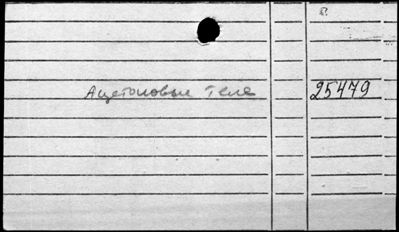 Ацетоновые Теле
25479